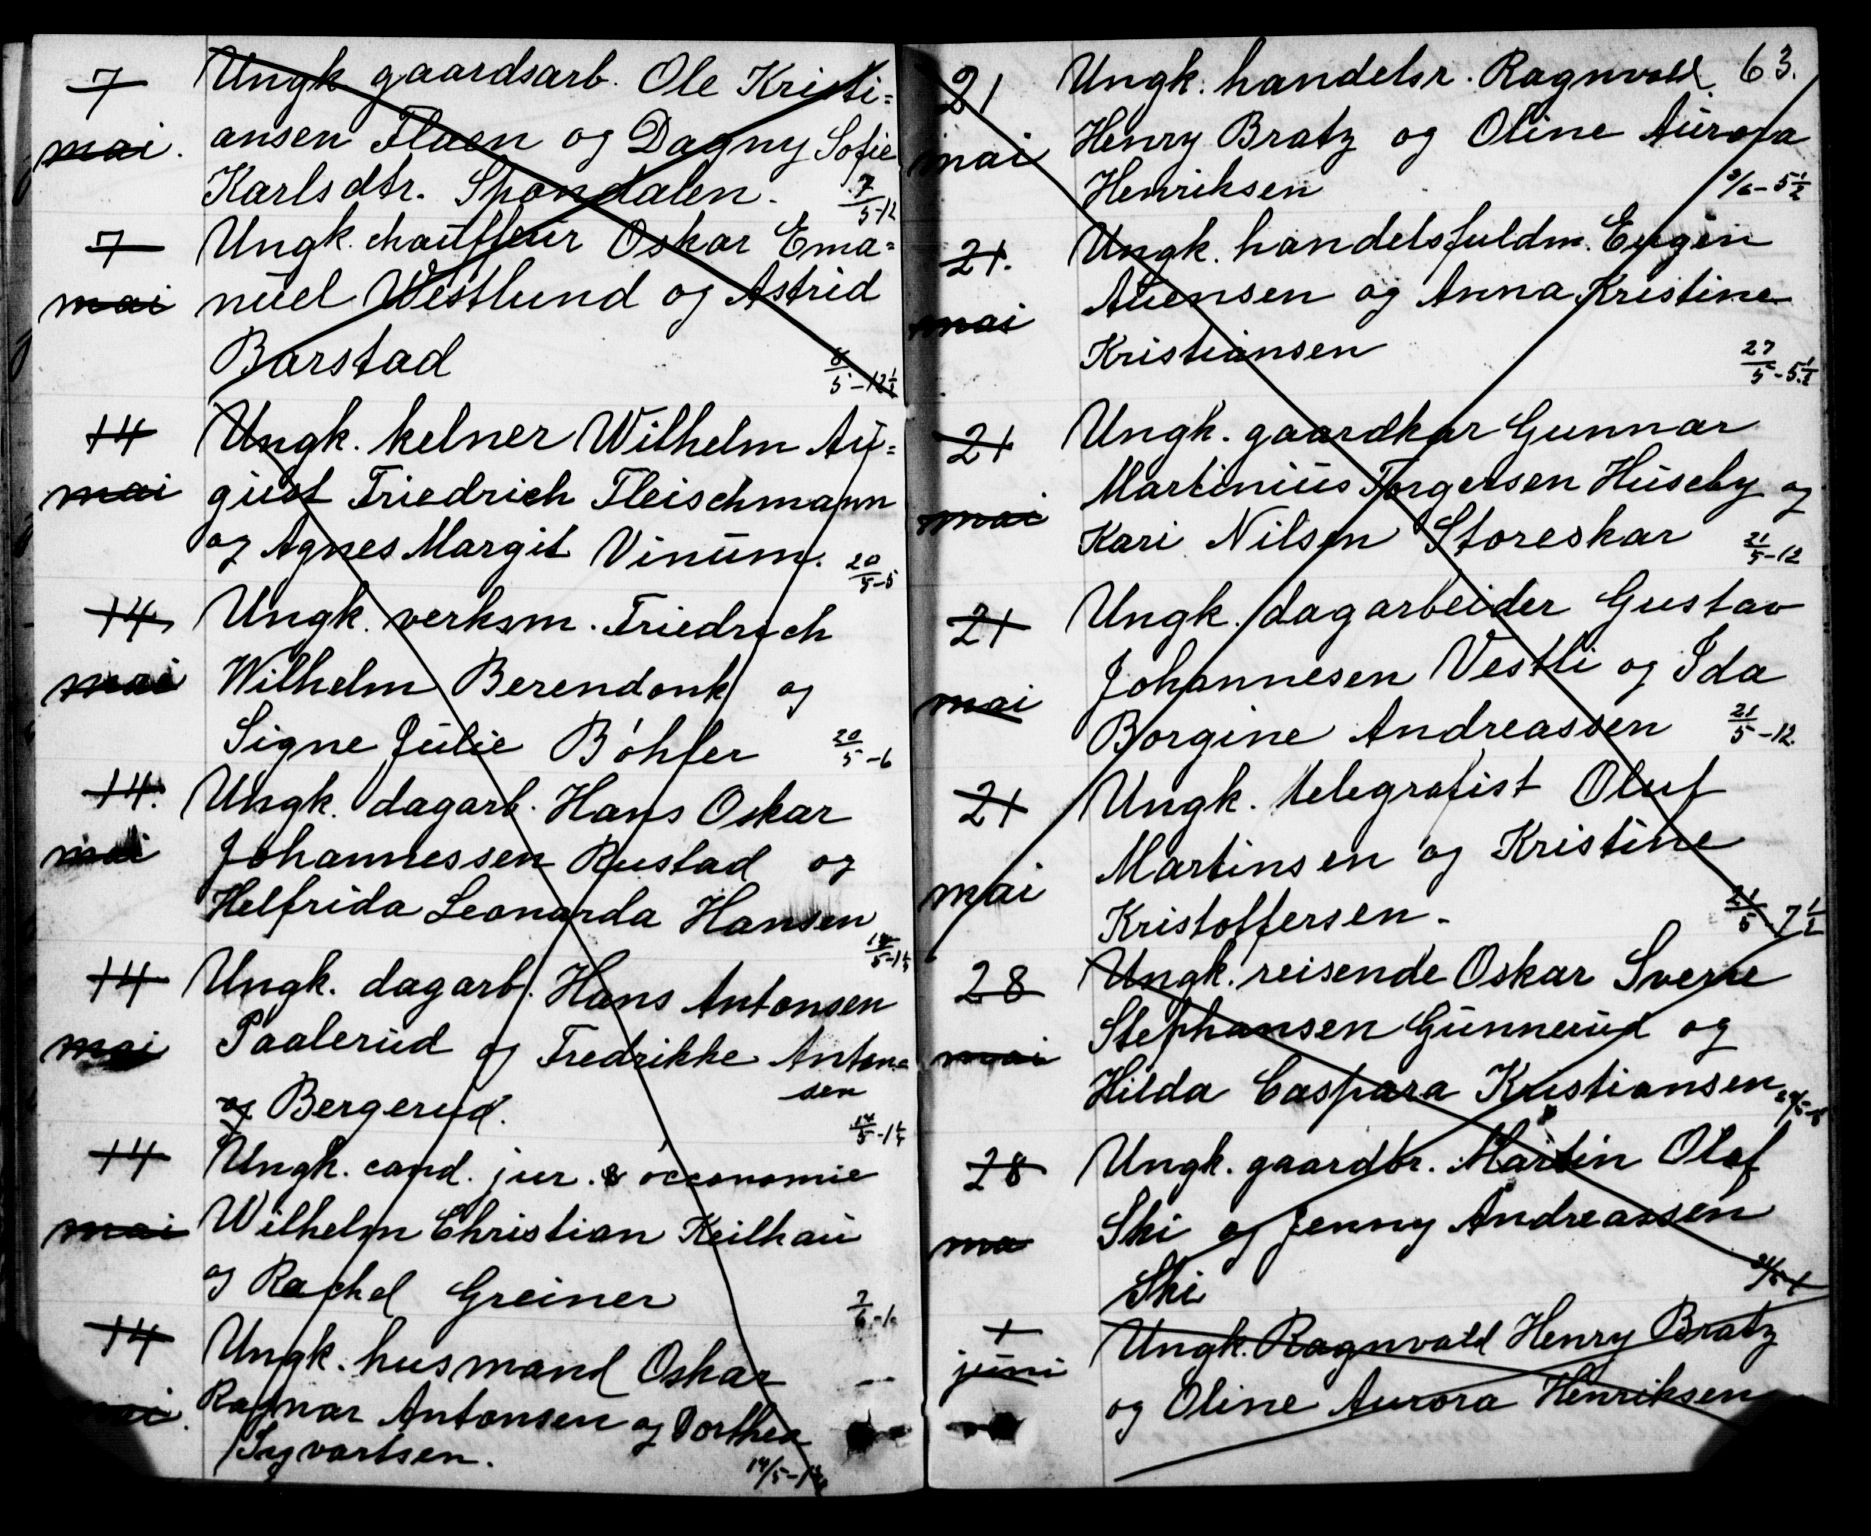 7
mai.
Ungk gaardsarb. Ole Kristi=
ansen Flaen og Dagny Sofie
Karlsdtr. Spondalen.
7/5-12
7
mai
Ungk. chauffeur Oskar Ema=
nuel Westlund og Astrid
Barstad
8/5-12½
14
mai
Ungk. kelner Wilhelm Au=
gust Friedrich Fleischmann
og Agnes Margit Vinum.
20/5-5
14
mai
Ungk. verksm. Friedrich
Wilhelm Berendonk og
Signe Julie Bøhler
20/5-6
14.
mai
Ungk. dagarb. Hans Oskar
Johannessen Rustad og
Helfrida Leonarda Hansen
14
mai
Ungk. dagarb. Hans Antonsen
Paalerud og Fredrikke Anton=
sen
og Bergerud.
14
mai
Ungk. cand. jur. & occonomie
Wilhelm Christian Keilhau
og Rachel Greiner
14
mai.
Ungk. husmand Oskar
Ragnar Antonsen og Dorthea
Sigvartsen.
63.
21
mai
Ungk. handelsr. Ragnvald
Henry Bratz og Oline Aurora
Henriksen
3/6-5½
21.
mai
Ungk. handelsfuldm. Eugen
Auensen og Anna Kristine
Kristiansen
27/5-5½
21
mai
Ungk. gaardkar Gunnar
Martinius Torgersen Huseby og
Kari Nilsen Storeskar
21/5-12
21
mai
Ungk. dagarbeider Gustav
Johannesen Vestli og Ida
Borgine Andreassen
21/5-12.
21
mai
Ungk. telegrafist Oluf
Martinsen og Kristine
Kristoffersen.
21/5-7½
28
mai
Ungk. reisende Oskar Sverre
Stephansen Gunnerud og
Hilda Caspara Kristiansen
28
ma
Ungk. gaardbr. Martin Olaf
Ski og Jenny Andreassen
Ski
1
juni
Ungk. Ragnvald Henry Bratz
og Oline Aurora Henriksen